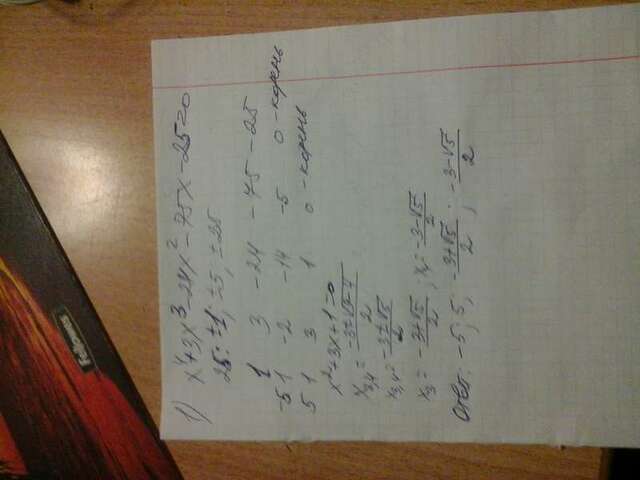 1) x⁴+3x³-24x²-75x-25=0
25: ±1; ±5; ±25
1 3 -24 -75 -25
-5 1 -2 -14 -5 0 - корень
5 1 3 1 0 - корень
x²+3x+1=0
x₃,₄ = (-3±√9-4)/2
x₃,₄ = (-3±√5)/2
x₃ = -(3+√5)/2 ; x₄ = (-3-√5)/2
Ответ: -5; 5; -(3+√5)/2 ; (-3-√5)/2
Fellowes